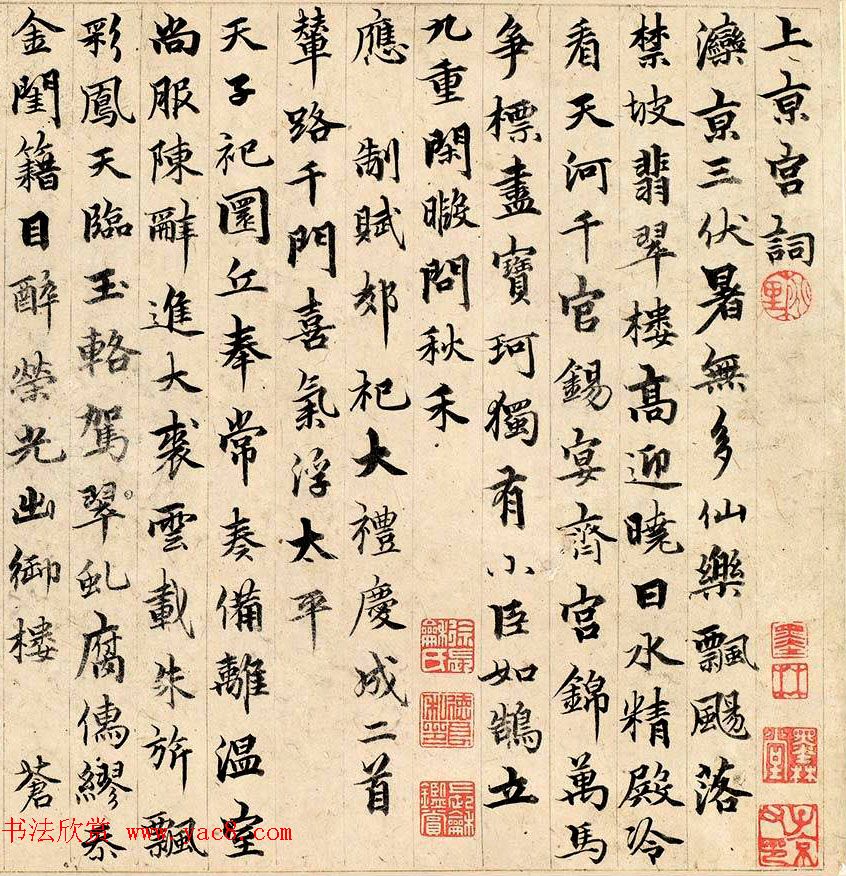 上京宮詞
灤京三伏暑無多仙樂飄颺落
禁坡翡翠樓高迎曉日水精殿冷
看天河千官錫宴齊宮錦萬馬
爭標盡寶珂獨有小臣如鵠立
九重閑暇問秋禾
應制賦郊祀大禮慶成二首
輦路千門喜氣浮太平
天子祀圜丘奉常奏備離溫室
尚服陳辭進大裘雲載朱旂飄
彩鳳天臨玉輅駕翠虬腐儒繆忝
金閨籍目醉榮光出御樓 蒼
书法欣赏 www.yac8.com